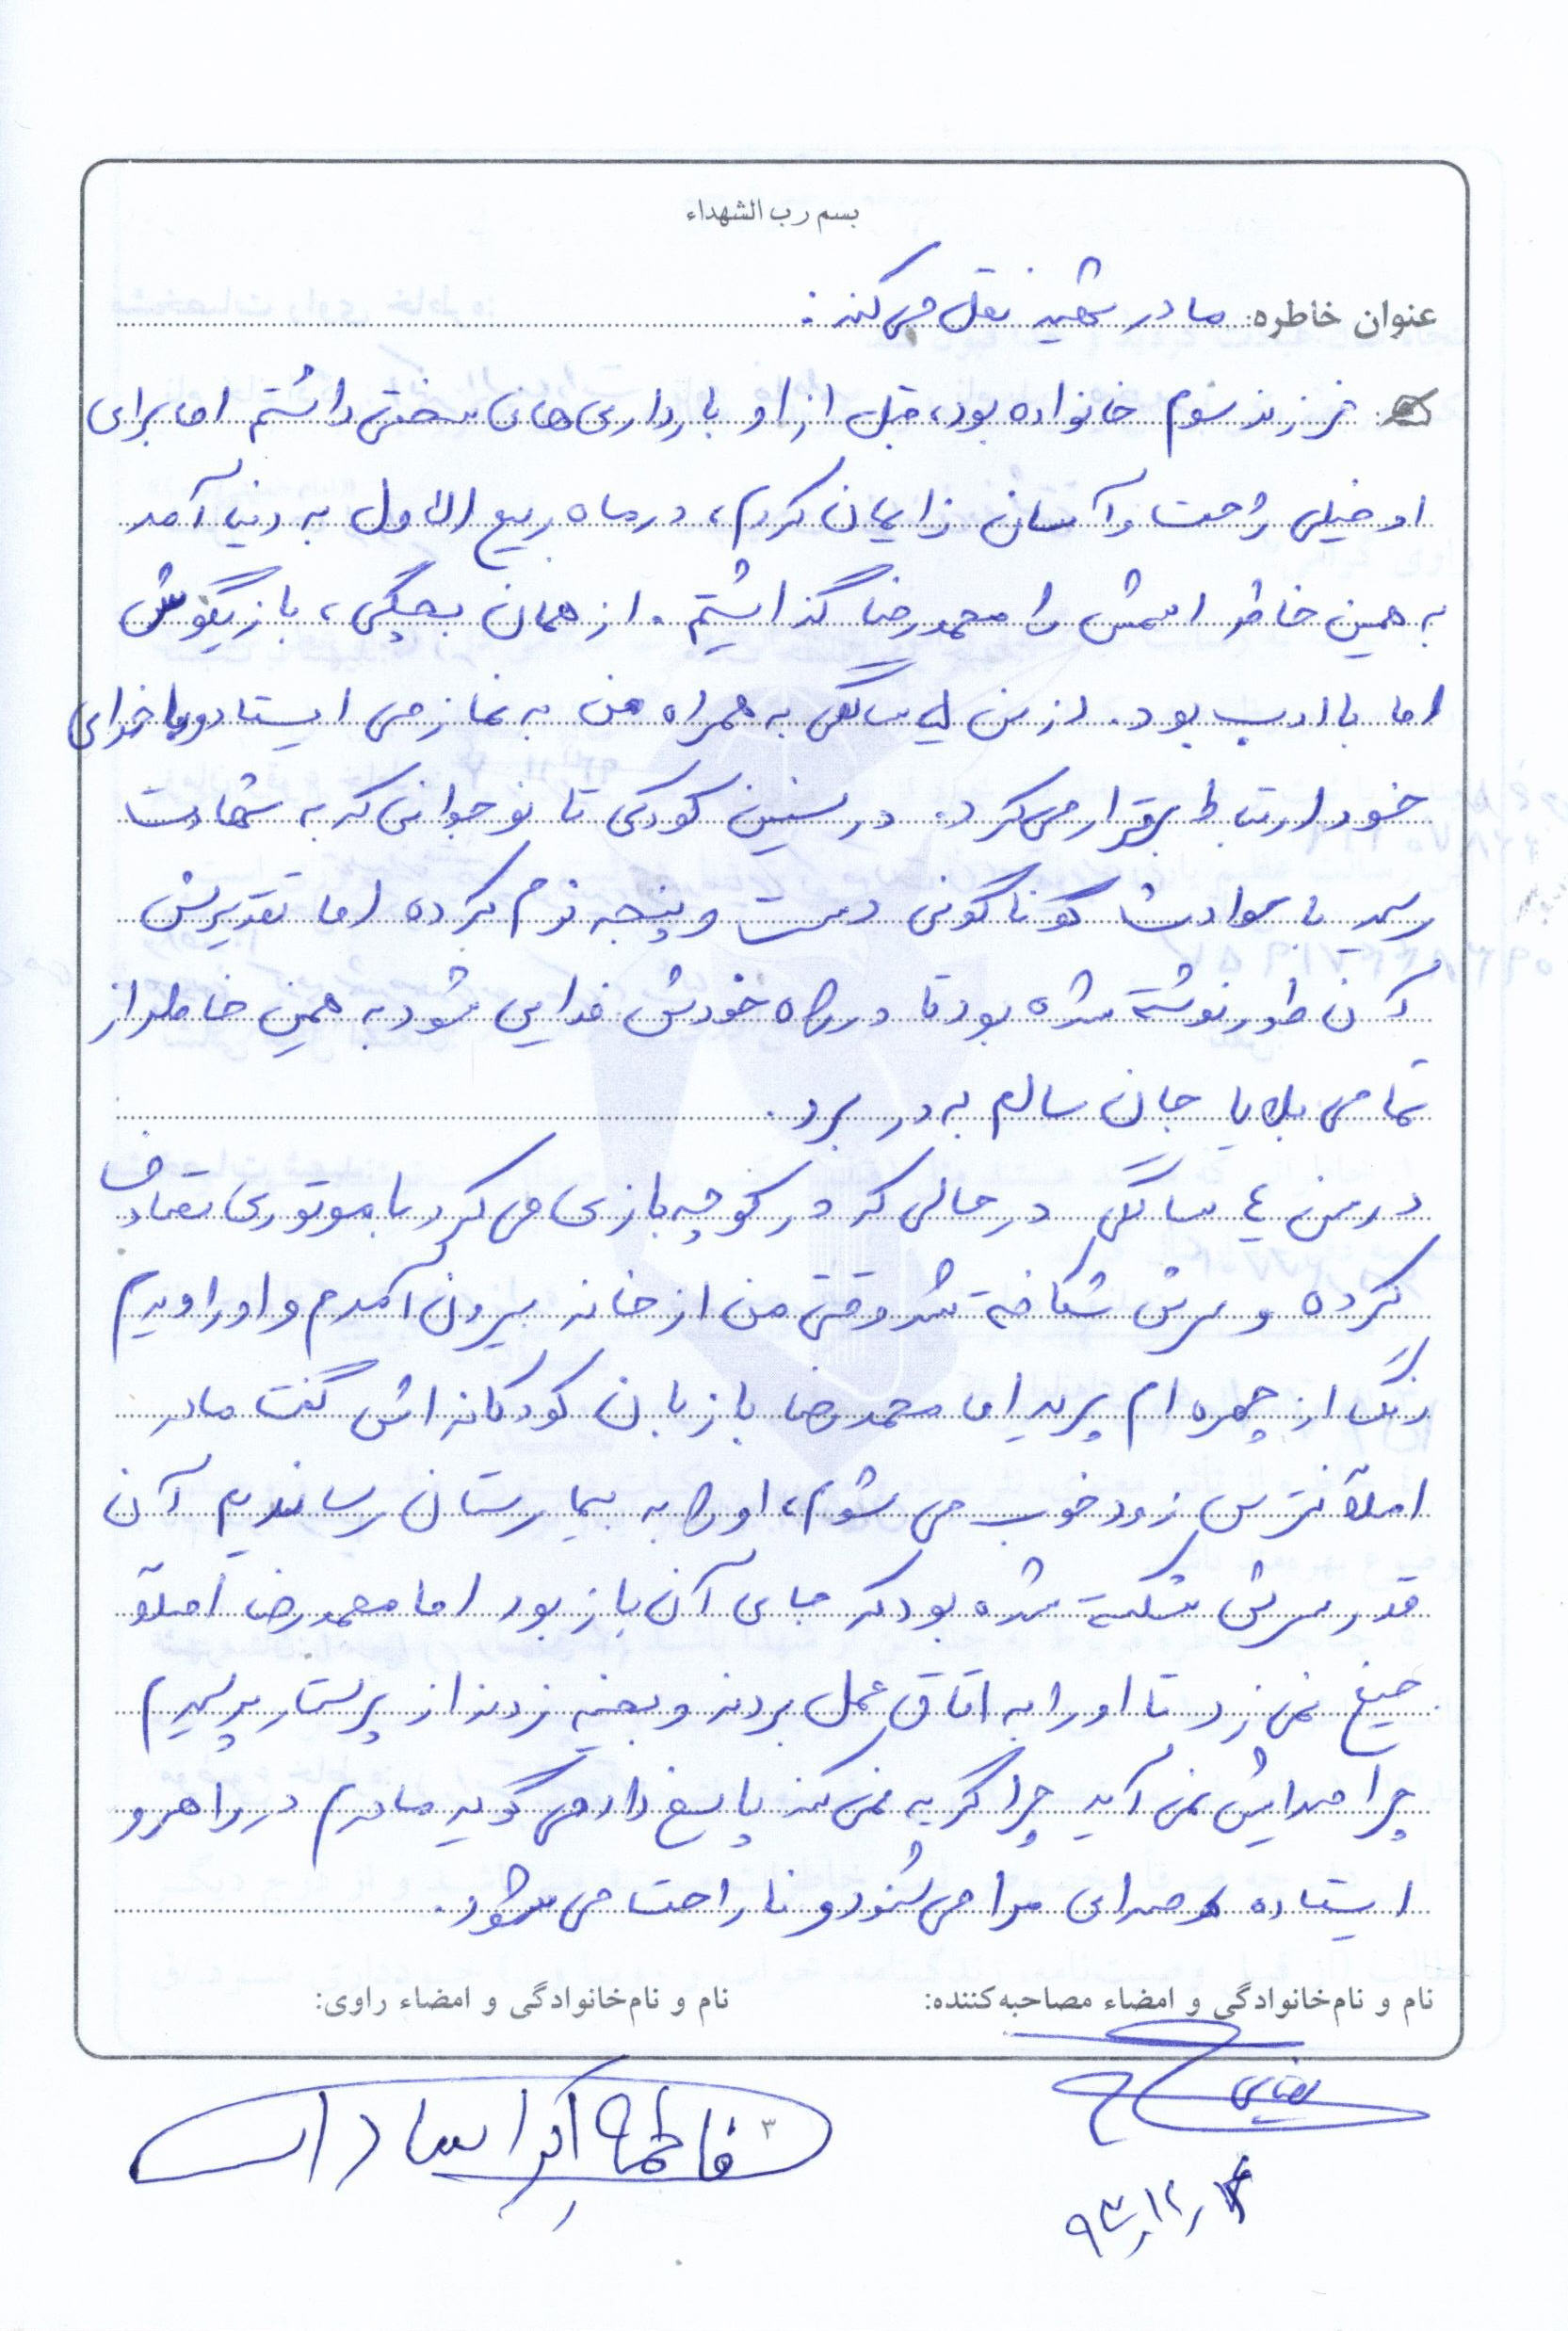 بسم رب الشهداء
عنوان خاطره: مادر شهید نقل می‌کند:
فرزند سوم خانواده بود، قبل از او بارداری‌های سختی داشتم اما برای
او خیلی راحت و آسان زایمان کردم، در ماه ربیع الاول به دنیا آمد
به همین خاطر اسمش را محمدرضا گذاشتیم. از همان بچگی، بازیگوش
اما با ادب بود. از سن سالگی به همراه من به نماز می ایستاد و با خدای
خود ارتباط برقرار می‌کرد. در سنین کودکی تا نوجوانی که به شهادت
رسید با حوادث گوناگونی دست و پنجه نرم کرده اما تقدیرش
آن طور نوشته شده بود تا در راه خودش فدایی شود به همین خاطر از
تمامی بلایا جان سالم به در برد.
در سن ٤ سالگی در حالی که در کوچه بازی می کرد با موتوری تصادف
کرده و سرش شکافته شد وقتی من از خانه بیرون آمدم و او را دیدم
رنگ از چهره ام پرید اما محمدرضا با زبان کودکانه اش گفت مادر
اصلاً نترس زود خوب می شوم، او را به بیمارستان رساندیم آن
قدر سرش شکسته شده بود که جای آن باز بود اما محمدرضا اصلاً
جیغ نمی زد تا او را به اتاق عمل بردند و بخیه زدند از پرستار پرسیدم
چرا صدایش نمی آید چرا گریه نمی کند پاسخ داد می گوید مادرم در راهرو
ایستاده صدای مرا می شنود و ناراحت می شود.
نام و نام‌خانوادگی و امضاء مصاحبه‌کننده:
نام و نام‌خانوادگی و امضاء راوی:
فاطمه اکبر السادات
۳